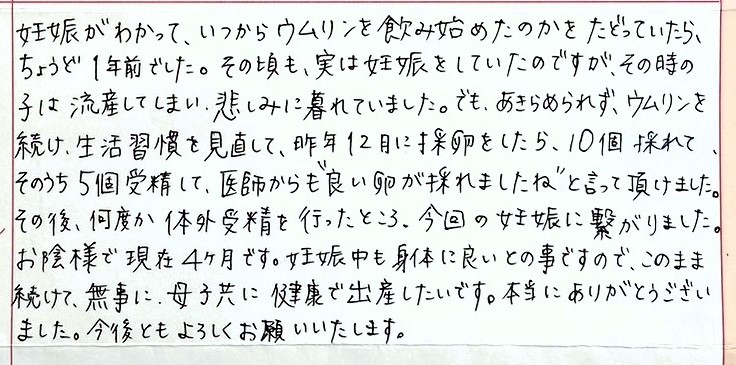 妊娠がわかって、いつからウムリンを飲み始めたのかをたどっていたら、
ちょうど1年前でした。その頃も、実は妊娠をしていたのですが、その時の
子は流産してしまい、悲しみに暮れていました。でも、あきらめられず、ウムリンを
続け、生活習慣を見直して、昨年12月に採卵をしたら、10個採れて、
そのうち5個受精して、医師からも"良い卵が採れましたね"と言って頂けました。
その後、何度か体外受精を行ったところ、今回の妊娠に繋がりました。
お陰様で現在4ヶ月です。妊娠中も身体に良いとの事ですので、このまま
続けて、無事に、母子共に健康で出産したいです。本当にありがとうござい
ました。今後ともよろしくお願いいたします。